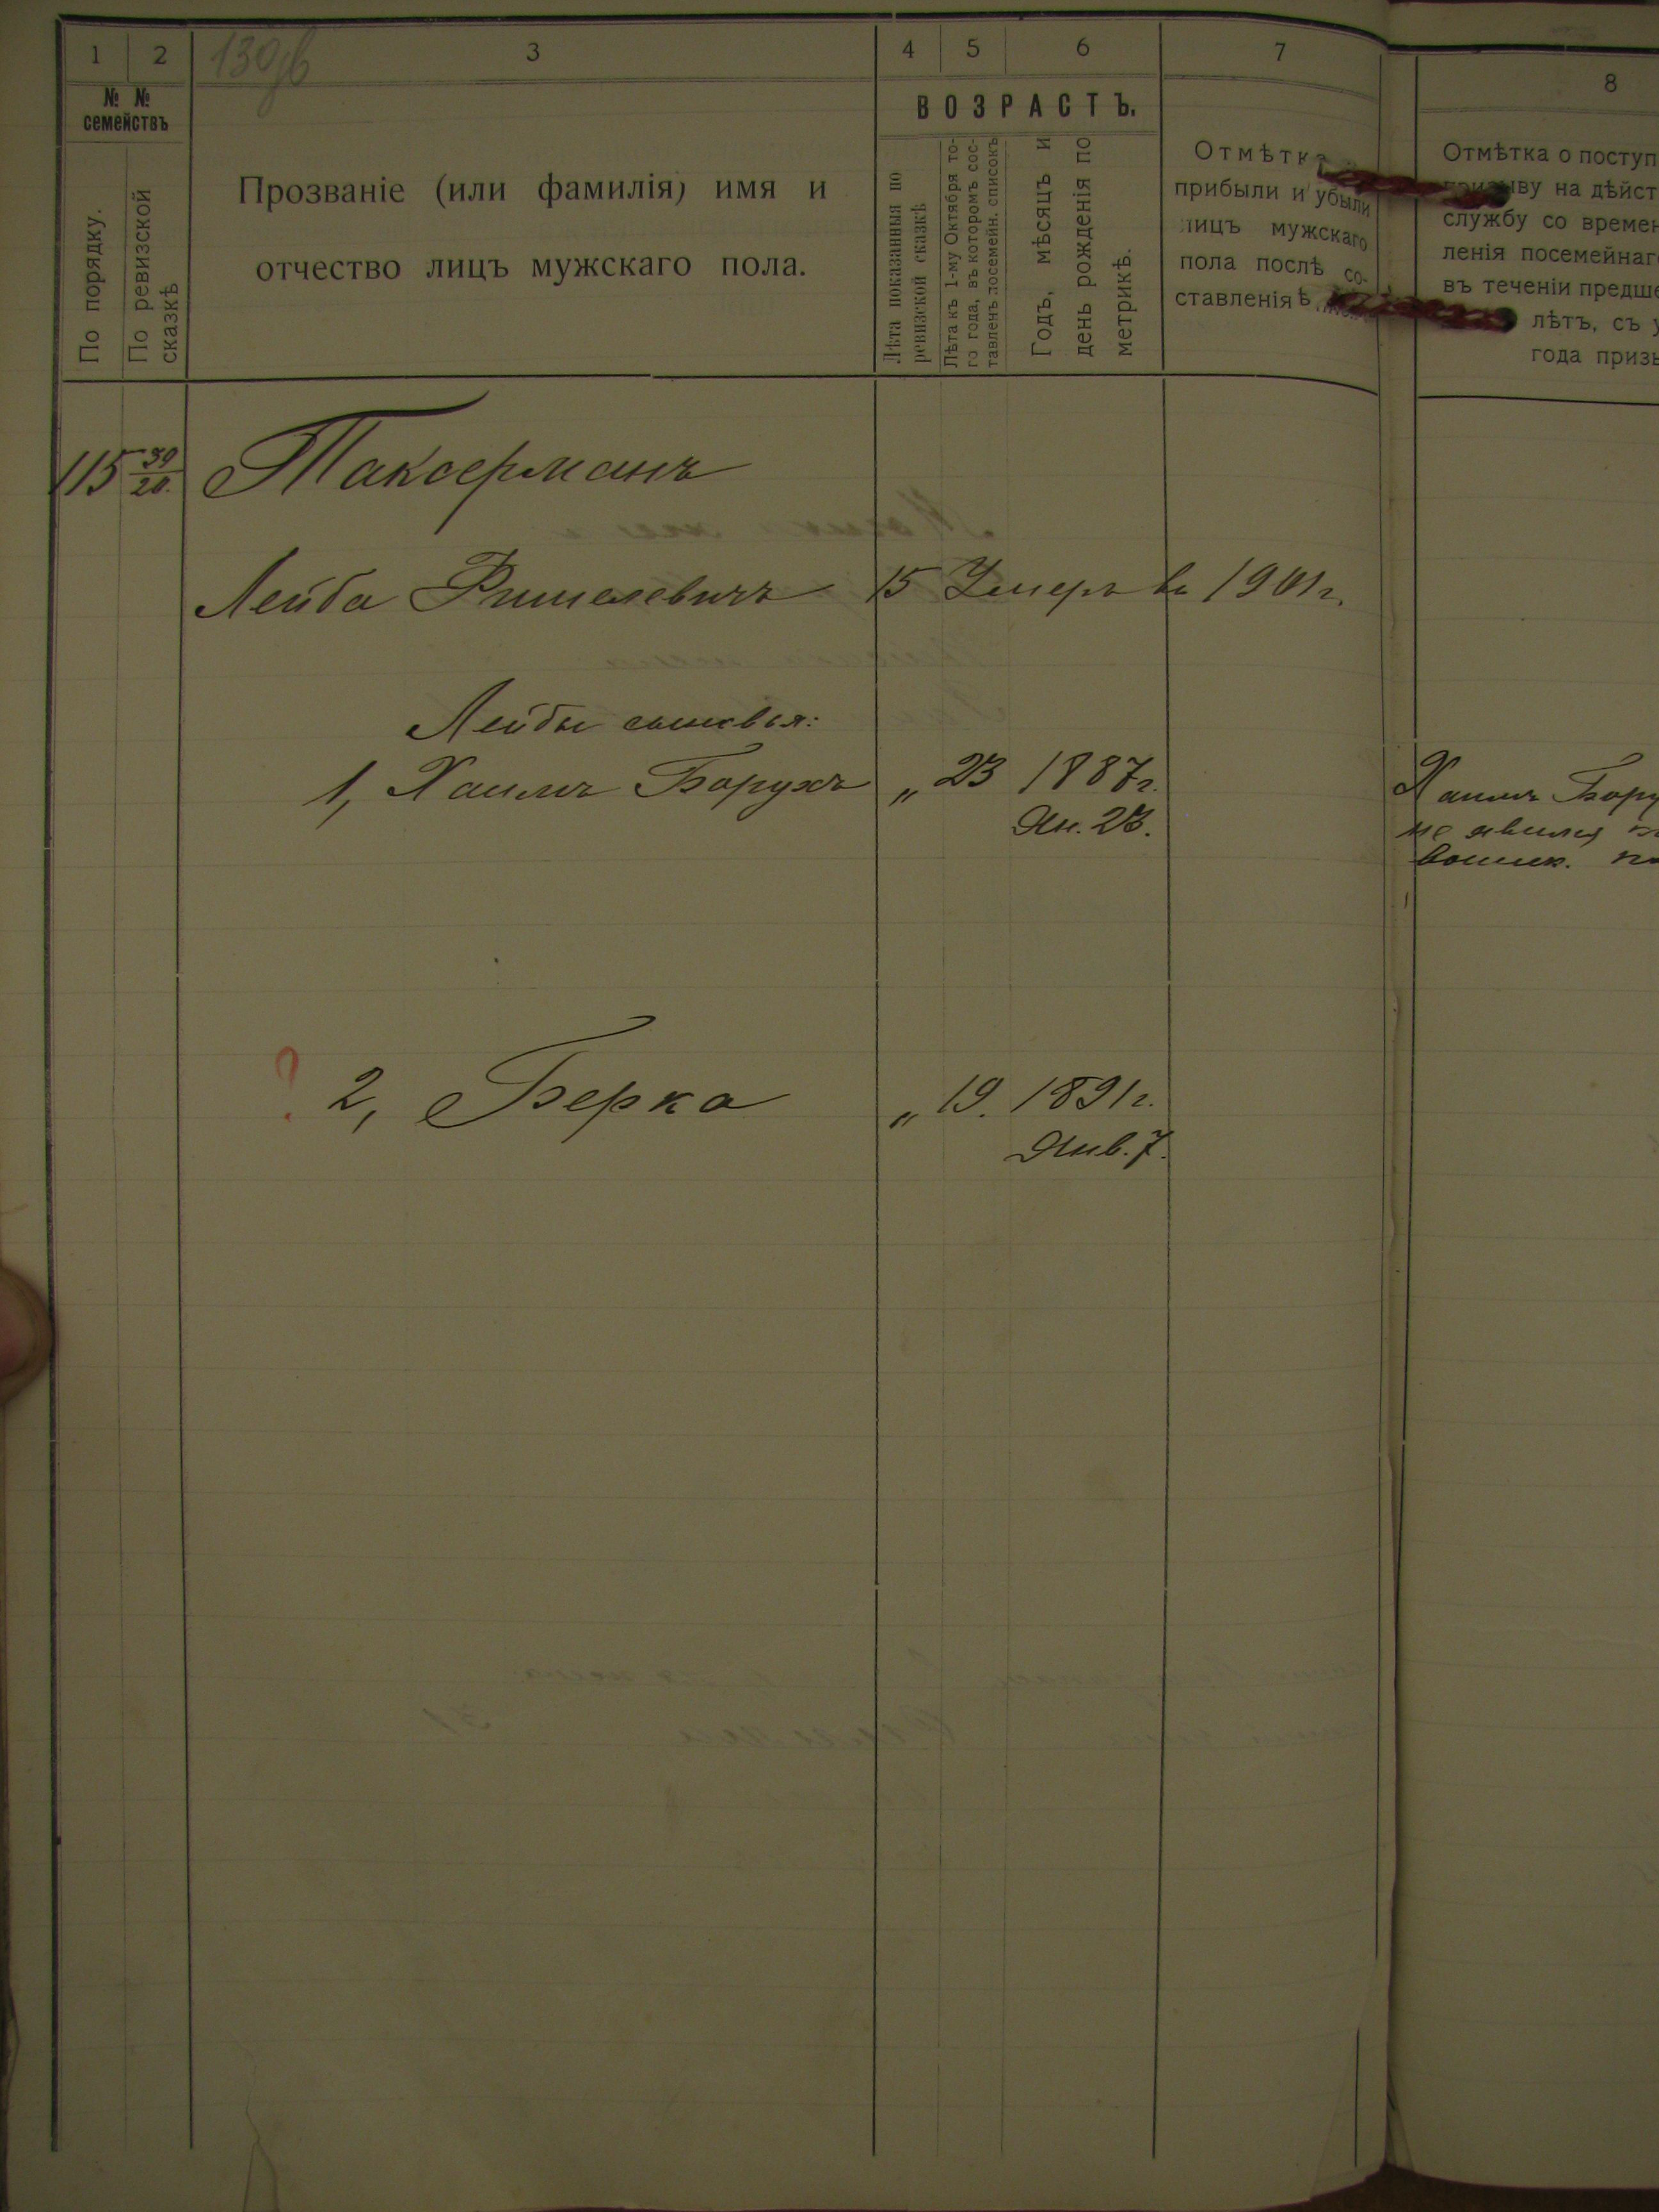 1 2 3 4 5 6 7
№ № семействъ
По порядку.
По ревизской сказкѣ
Прозваніе (или фамилія) имя и
отчество лицъ мужскаго пола.
ВОЗРАСТЪ.
Лѣта показанныя по
ревизской сказкѣ
Лѣта къ 1-му Октября то-
го года, въ которомъ сос-
тавленъ посемейн. списокъ
Годъ, мѣсяцъ и
день рожденія по
метрикѣ.
Отмѣтка
прибыли и убыли
лицъ мужскаго
пола послѣ со-
ставленія
8
Отмѣтка о поступ
призыву на дѣйст
службу со времен
ленія посемейнаг
въ теченіи предше
лѣтъ, съ у
года призы
115 39/20. Таксерманъ
Лейба Фишелевичъ 15 Умеръ въ 1901 г.
Лейбы сыновья:
1, Хаимъ Борухъ „ 23 1887 г.
Ян. 23.
Хаимъ Бору
не явился
воинск.
? 2, Берка „ 19. 1891 г.
Янв. 7.